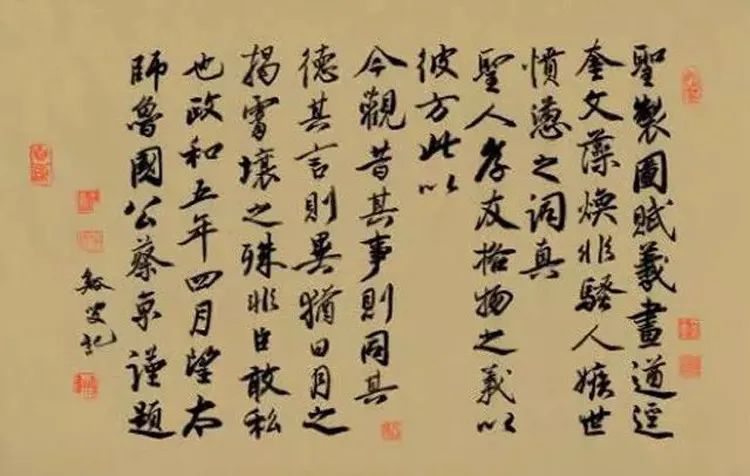 聖製圖賦羲畫遒逕
奎文藻煥非騷人嫉世
憤懣之詞真
聖人孝友格物之義以
彼方此以
今觀昔其事則同其
德其言則異猶日月之
揭霄壤之殊非臣敢私
也政和五年四月望太
師魯國公蔡京謹題
叟記